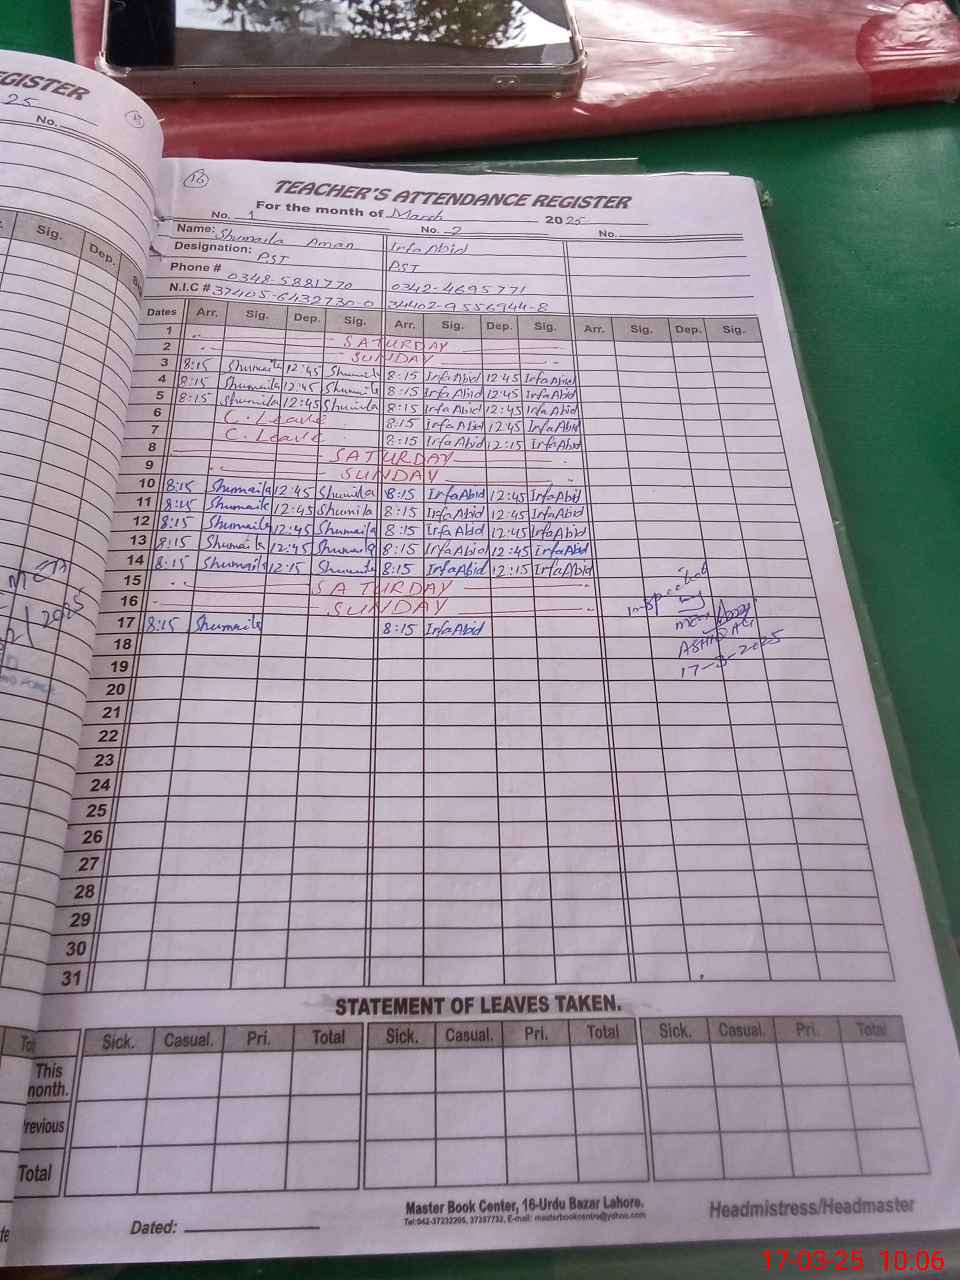 EGISTER
25
No.
Sig. Dep.
16
TEACHER'S ATTENDANCE REGISTER
For the month of March 2025
No. 1 No. 2 No.
Name: Shumaila Aman Irfa Abid
Designation: PST PST
Phone # 0348-5881770 0342-4695771
N.I.C # 37405-6432730-0 34402-9556944-8
Dates Arr. Sig. Dep. Sig. Arr. Sig. Dep. Sig. Arr. Sig. Dep. Sig.
1 SATURDAY
2 SUNDAY
3 8:15 Shumaila 12:45 Shumaila 8:15 IrfaAbid 12:45 IrfaAbid
4 8:15 Shumaila 12:45 Shumaila 8:15 IrfaAbid 12:45 IrfaAbid
5 8:15 Shumaila 12:45 Shumaila 8:15 IrfaAbid 12:45 IrfaAbid
6 C.Leave 8:15 IrfaAbid 12:45 IrfaAbid
7 C.Leave 8:15 IrfaAbid 12:15 IrfaAbid
8 SATURDAY
9 SUNDAY
10 8:15 Shumaila 12:45 Shumaila 8:15 IrfaAbid 12:45 IrfaAbid
11 8:15 Shumaila 12:45 Shumaila 8:15 IrfaAbid 12:45 IrfaAbid
12 8:15 Shumaila 12:45 Shumaila 8:15 IrfaAbid 12:45 IrfaAbid
13 8:15 Shumaila 12:45 Shumaila 8:15 IrfaAbid 12:45 IrfaAbid
14 8:15 Shumaila 12:15 Shumaila 8:15 IrfaAbid 12:15 IrfaAbid
15 SATURDAY
16 SUNDAY
17 8:15 Shumaila 8:15 IrfaAbid
18
19
20
21
22
23
24
25
26
27
28
29
30
31
by
17-3-2025
STATEMENT OF LEAVES TAKEN.
Sick. Casual. Pri. Total Sick. Casual. Pri. Total Sick. Casual. Pri. Total
This month.
Previous
Total
Master Book Center, 16-Urdu Bazar Lahore.
Dated:
Headmistress/Headmaster
17-03-25 10:06